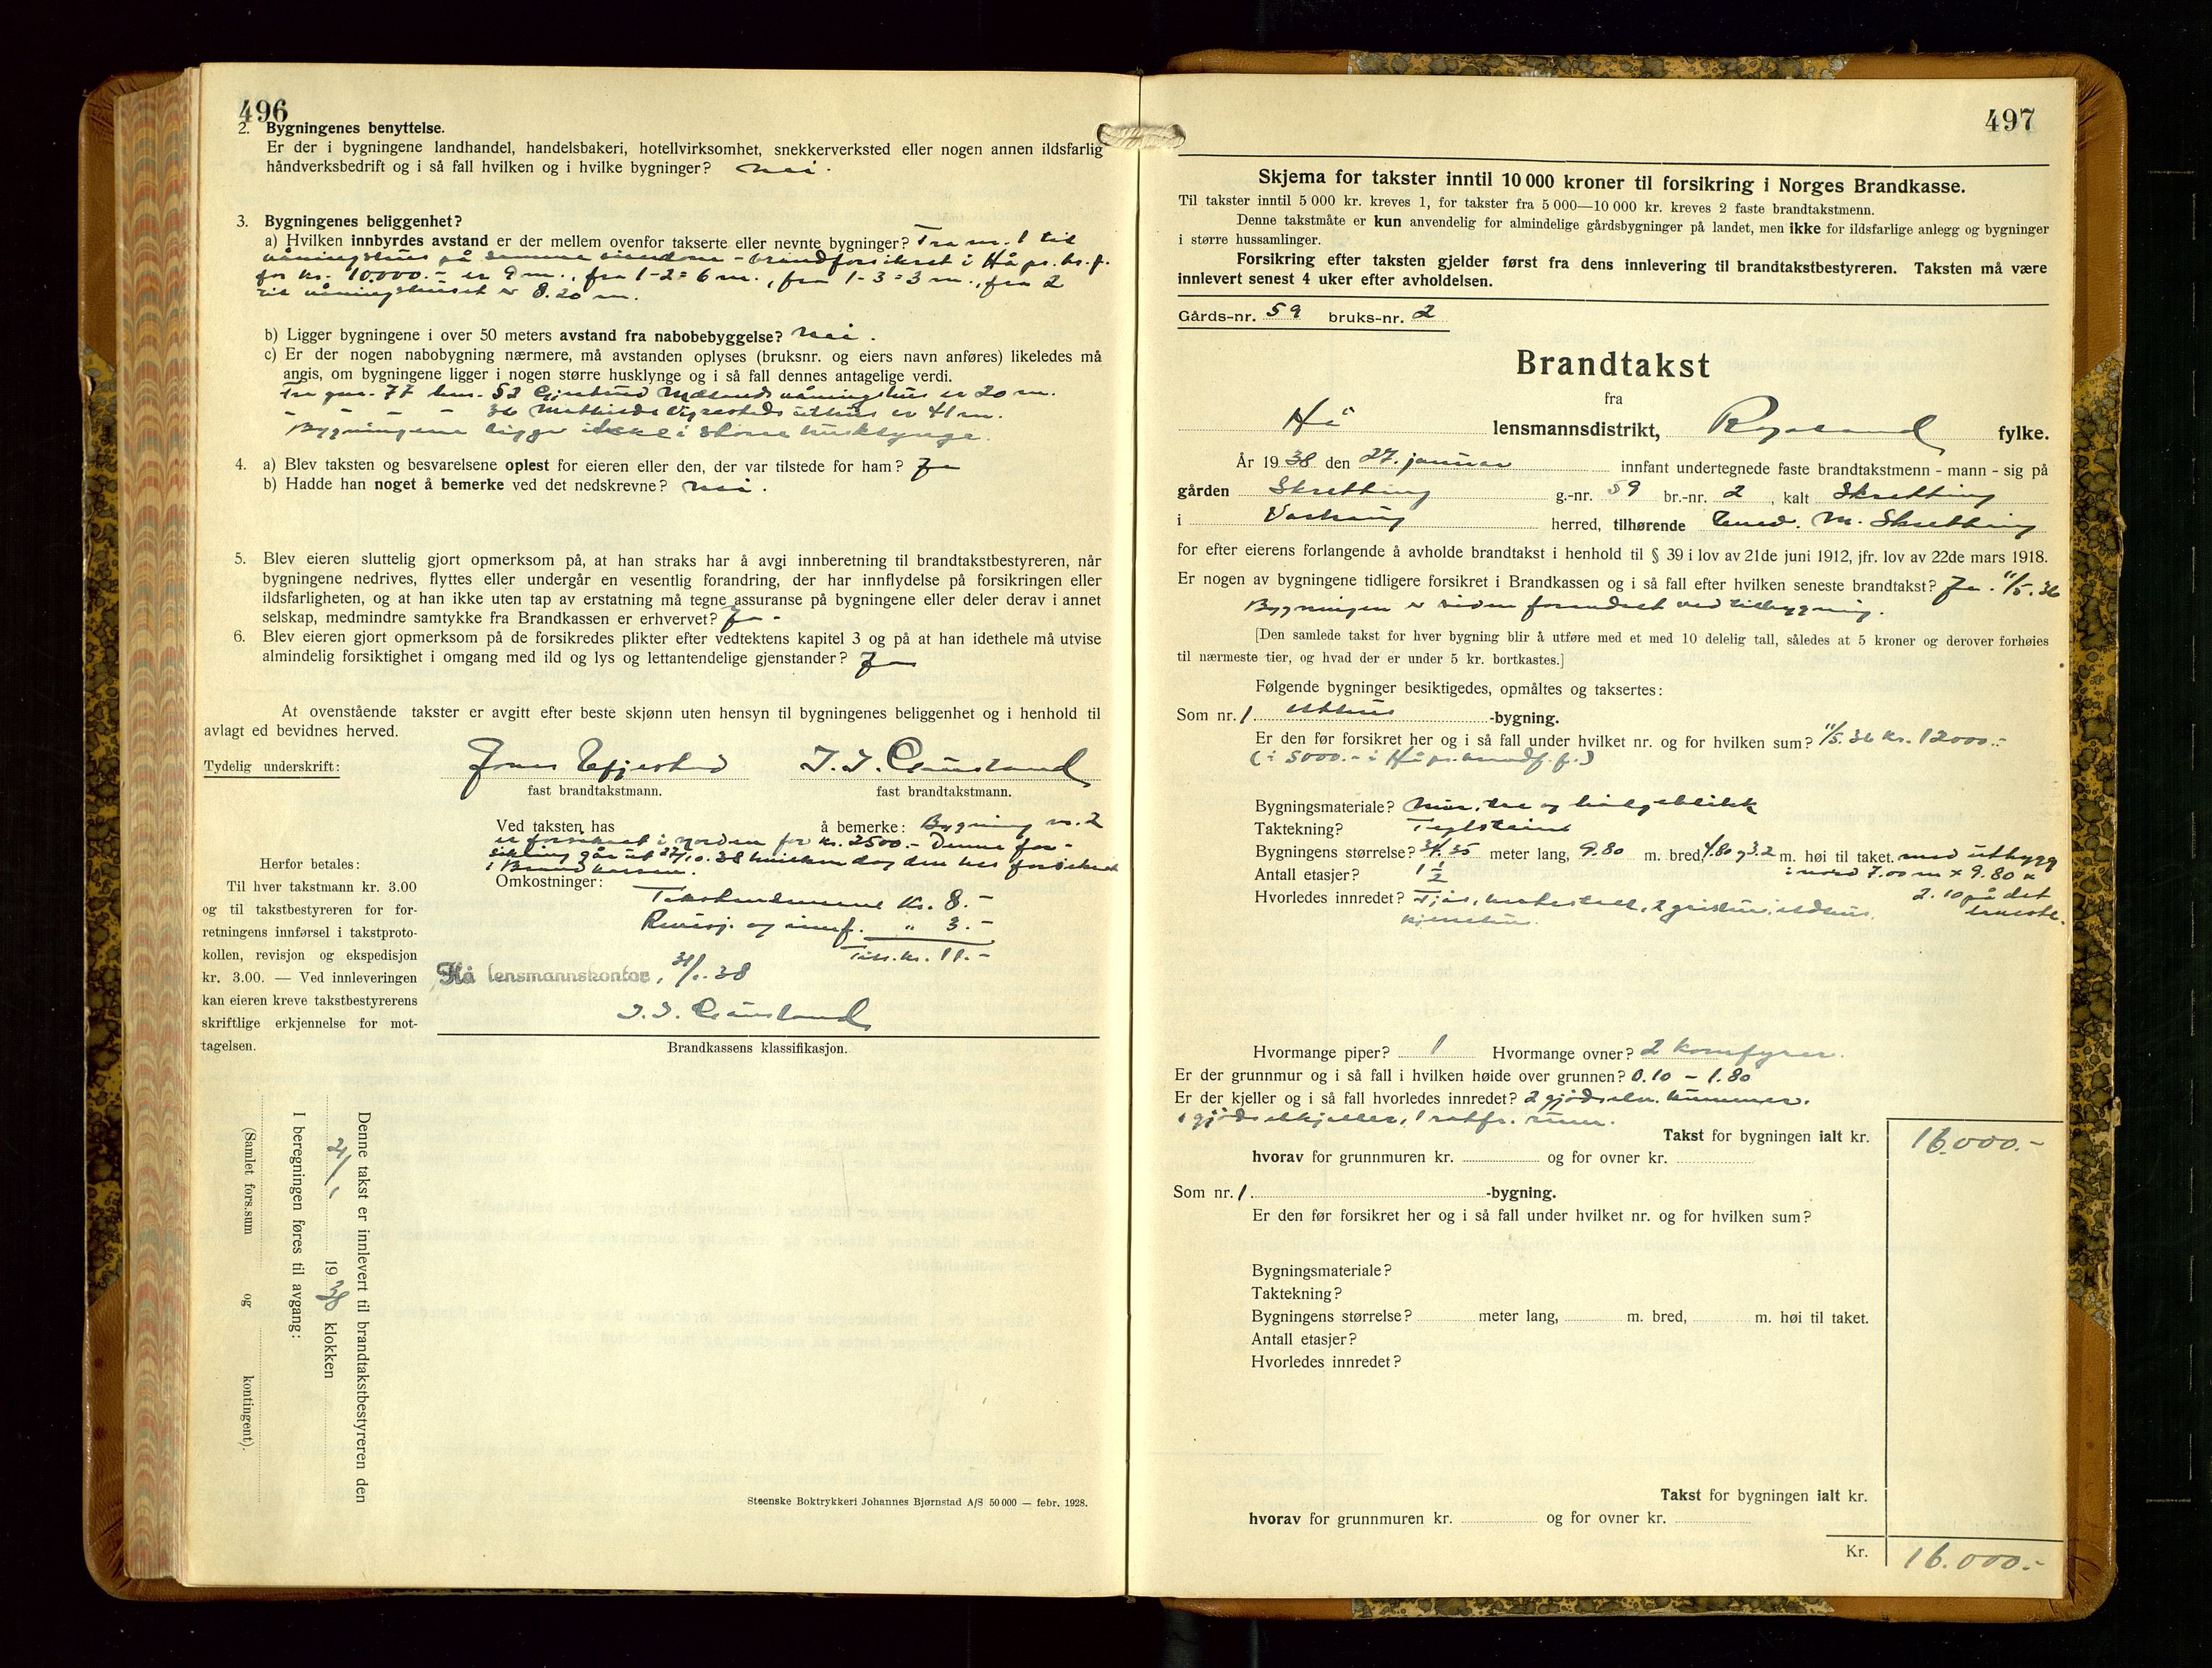 496
2. Bygningenes benyttelse.
Er der i bygningene landhandel, handelsbakeri, hotellvirksomhet, snekkerverksted eller nogen annen ildsfarlig
håndverksbedrift og i så fall hvilken og i hvilke bygninger? nei.
3. Bygningenes beliggenhet?
a) Hvilken innbyrdes avstand er der mellem ovenfor takserte eller nevnte bygninger? Fra nr. 1 til
våningshus på samme eiendom - brandforsikret i Hå pr. br. f.
for kr. 10.000.- er 9 m., fra 1-2 = 6 m., fra 1-3 = 3 m., fra 2
til våningshuset er 8.20 m.
b) Ligger bygningene i over 50 meters avstand fra nabobebyggelse? nei.
c) Er der nogen nabobygning nærmere, må avstanden oplyses (bruksnr. og eiers navn anføres) likeledes må
angis, om bygningene ligger i nogen større husklynge og i så fall dennes antagelige verdi.
Fra gnr. 77 bnr. 52 Gjertrud Mælands våningshus er 20 m.
- - - - 36 Mathilde uthus er 41 m.
Bygningene ligger ikke i større husklynge.
4. a) Blev taksten og besvarelsene oplest for eieren eller den, der var tilstede for ham? Ja
b) Hadde han noget å bemerke ved det nedskrevne? nei.
5. Blev eieren sluttelig gjort opmerksom på, at han straks har å avgi innberetning til brandtakstbestyreren, når
bygningene nedrives, flyttes eller undergår en vesentlig forandring, der har innflydelse på forsikringen eller
ildsfarligheten, og at han ikke uten tap av erstatning må tegne assuranse på bygningene eller deler derav i annet
selskap, medmindre samtykke fra Brandkassen er erhvervet? Ja -
6. Blev eieren gjort opmerksom på de forsikredes plikter efter vedtektens kapitel 3 og på at han idethele må utvise
almindelig forsiktighet i omgang med ild og lys og lettantendelige gjenstander? Ja
At ovenstående takster er avgitt efter beste skjønn uten hensyn til bygningenes beliggenhet og i henhold til
avlagt ed bevidnes herved.
Tydelig underskrift: Jonas J. J.
fast brandtakstmann. fast brandtakstmann.
Ved taksten has å bemerke: Bygning nr. 2
er forsikret i Norden for kr. 2500.- Denne for-
sikring går ut 27/10.38 hvilken dag den bes forsikret
i Brandkassen.
Herfor betales:
Til hver takstmann kr. 3.00
og til takstbestyreren for for-
retningens innførsel i takstproto-
kollen, revisjon og ekspedisjon
kr. 3.00. — Ved innleveringen
kan eieren kreve takstbestyrerens
skriftlige erkjennelse for mot-
tagelsen.
Omkostninger:
Takstmennene kr. 8.-
Revisj. og innf. " 3.-
Tils. kr. 11.-
Hå lensmannskontor, 31/1.38
J. J.
Brandkassens klassifikasjon.
Denne takst er innlevert til brandtakstbestyreren den
31/1 1938 klokken
I beregningen føres til avgang:
(Samlet fors.sum og kontingent).
Steenske Boktrykkeri Johannes Bjørnstad A/S 50 000 — febr. 1928.
497
Skjema for takster inntil 10 000 kroner til forsikring i Norges Brandkasse.
Til takster inntil 5 000 kr. kreves 1, for takster fra 5 000—10 000 kr. kreves 2 faste brandtakstmenn.
Denne takstmåte er kun anvendelig for almindelige gårdsbygninger på landet, men ikke for ildsfarlige anlegg og bygninger
i større hussamlinger.
Forsikring efter taksten gjelder først fra dens innlevering til brandtakstbestyreren. Taksten må være
innlevert senest 4 uker efter avholdelsen.
Gårds-nr. 59 bruks-nr. 2
Brandtakst
fra
Hå lensmannsdistrikt, Rogaland fylke.
År 1938 den 27. januar innfant undertegnede faste brandtakstmenn - mann - sig på
gården Skretting g.-nr. 59 br.-nr. 2, kalt Skretting
i Varhaug herred, tilhørende M. Skretting
for efter eierens forlangende å avholde brandtakst i henhold til § 39 i lov av 21de juni 1912, jfr. lov av 22de mars 1918.
Er nogen av bygningene tidligere forsikret i Brandkassen og i så fall efter hvilken seneste brandtakst? Ja. 11/5.36
Bygningen er siden forandret ved tilbygning.
[Den samlede takst for hver bygning blir å utføre med et med 10 delelig tall, således at 5 kroner og derover forhøies
til nærmeste tier, og hvad der er under 5 kr. bortkastes.]
Følgende bygninger besiktigedes, opmåltes og taksertes:
Som nr. 1 uthus -bygning.
Er den før forsikret her og i så fall under hvilket nr. og for hvilken sum? 11/5.36 kr. 12000.-
(i 5000.- i Hå pr. brandf. f.)
Bygningsmateriale? Mur, tre og bølgeblikk
Taktekning? Teglstein
Bygningens størrelse? 34.35 meter lang, 9.80 m. bred 4.80 og 3.2 m. høi til taket. med utbygg
Antall etasjer? 1 1/2 i nord 7.00 m x 9.80 x
Hvorledes innredet? Fjøs, hestestall, 2 grisehus, eldhus, 2.10 på det
laveste.
Hvormange piper? 1 Hvormange ovner? 2 komfyrer.
Er der grunnmur og i så fall i hvilken høide over grunnen? 0.10 - 1.80
Er der kjeller og i så fall hvorledes innredet? 2 gjødselv. kummer.
1 gjødselkjeller, 1 rotfr. rum.
Takst for bygningen ialt kr. 16.000.-
hvorav for grunnmuren kr. og for ovner kr.
Som nr. 1 -bygning.
Er den før forsikret her og i så fall under hvilket nr. og for hvilken sum?
Bygningsmateriale?
Taktekning?
Bygningens størrelse? meter lang, m. bred, m. høi til taket.
Antall etasjer?
Hvorledes innredet?
Takst for bygningen ialt kr.
hvorav for grunnmuren kr. og for ovner kr.
Kr. 16.000.-